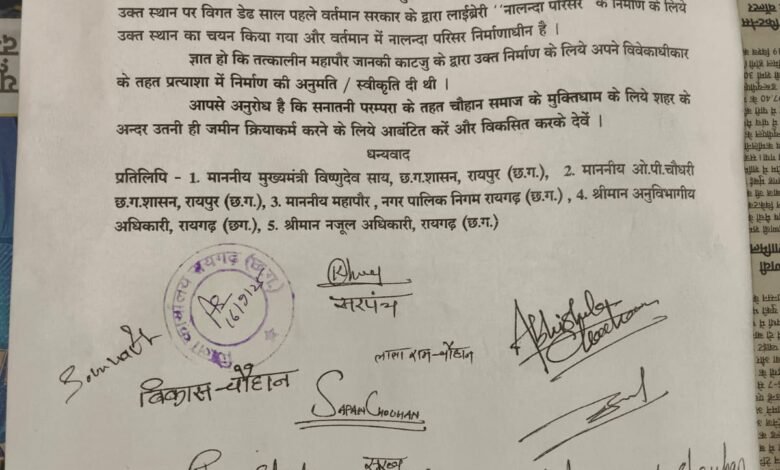 उक्त स्थान पर विगत डेढ साल पहले वर्तमान सरकार के द्वारा लाईब्रेरी "नालन्दा परिसर" के निर्माण के लिये
उक्त स्थान का चयन किया गया और वर्तमान में नालन्दा परिसर निर्माणाधीन है ।
ज्ञात हो कि तत्कालीन महापौर जानकी काटजु के द्वारा उक्त निर्माण के लिये अपने विवेकाधीकार
के तहत प्रत्याशा में निर्माण की अनुमति / स्वीकृति दी थी ।
आपसे अनुरोध है कि सनातनी परम्परा के तहत चौहान समाज के मुक्तिधाम के लिये शहर के
अन्दर उतनी ही जमीन क्रियाकर्म करने के लिये आबंटित करें और विकसित करके देवें ।
धन्यवाद
प्रतिलिपि - 1. माननीय मुख्यमंत्री विष्णुदेव साय, छ.ग.शासन, रायपुर (छ.ग.), 2. माननीय ओ.पी.चौधरी
छ.ग.शासन, रायपुर (छ.ग.), 3. माननीय महापौर , नगर पालिक निगम रायगढ़ (छ.ग.) , 4. श्रीमान अनुविभागीय
अधिकारी, रायगढ़ (छग.), 5. श्रीमान नजूल अधिकारी, रायगढ़ (छ.ग.)
कार्यालय रायगढ़ (छ.ग.)
सरपंच
लाला राम-चौहान
Abhishek Chouhan
विकास-चौहान
SAPAN CHOUHAN